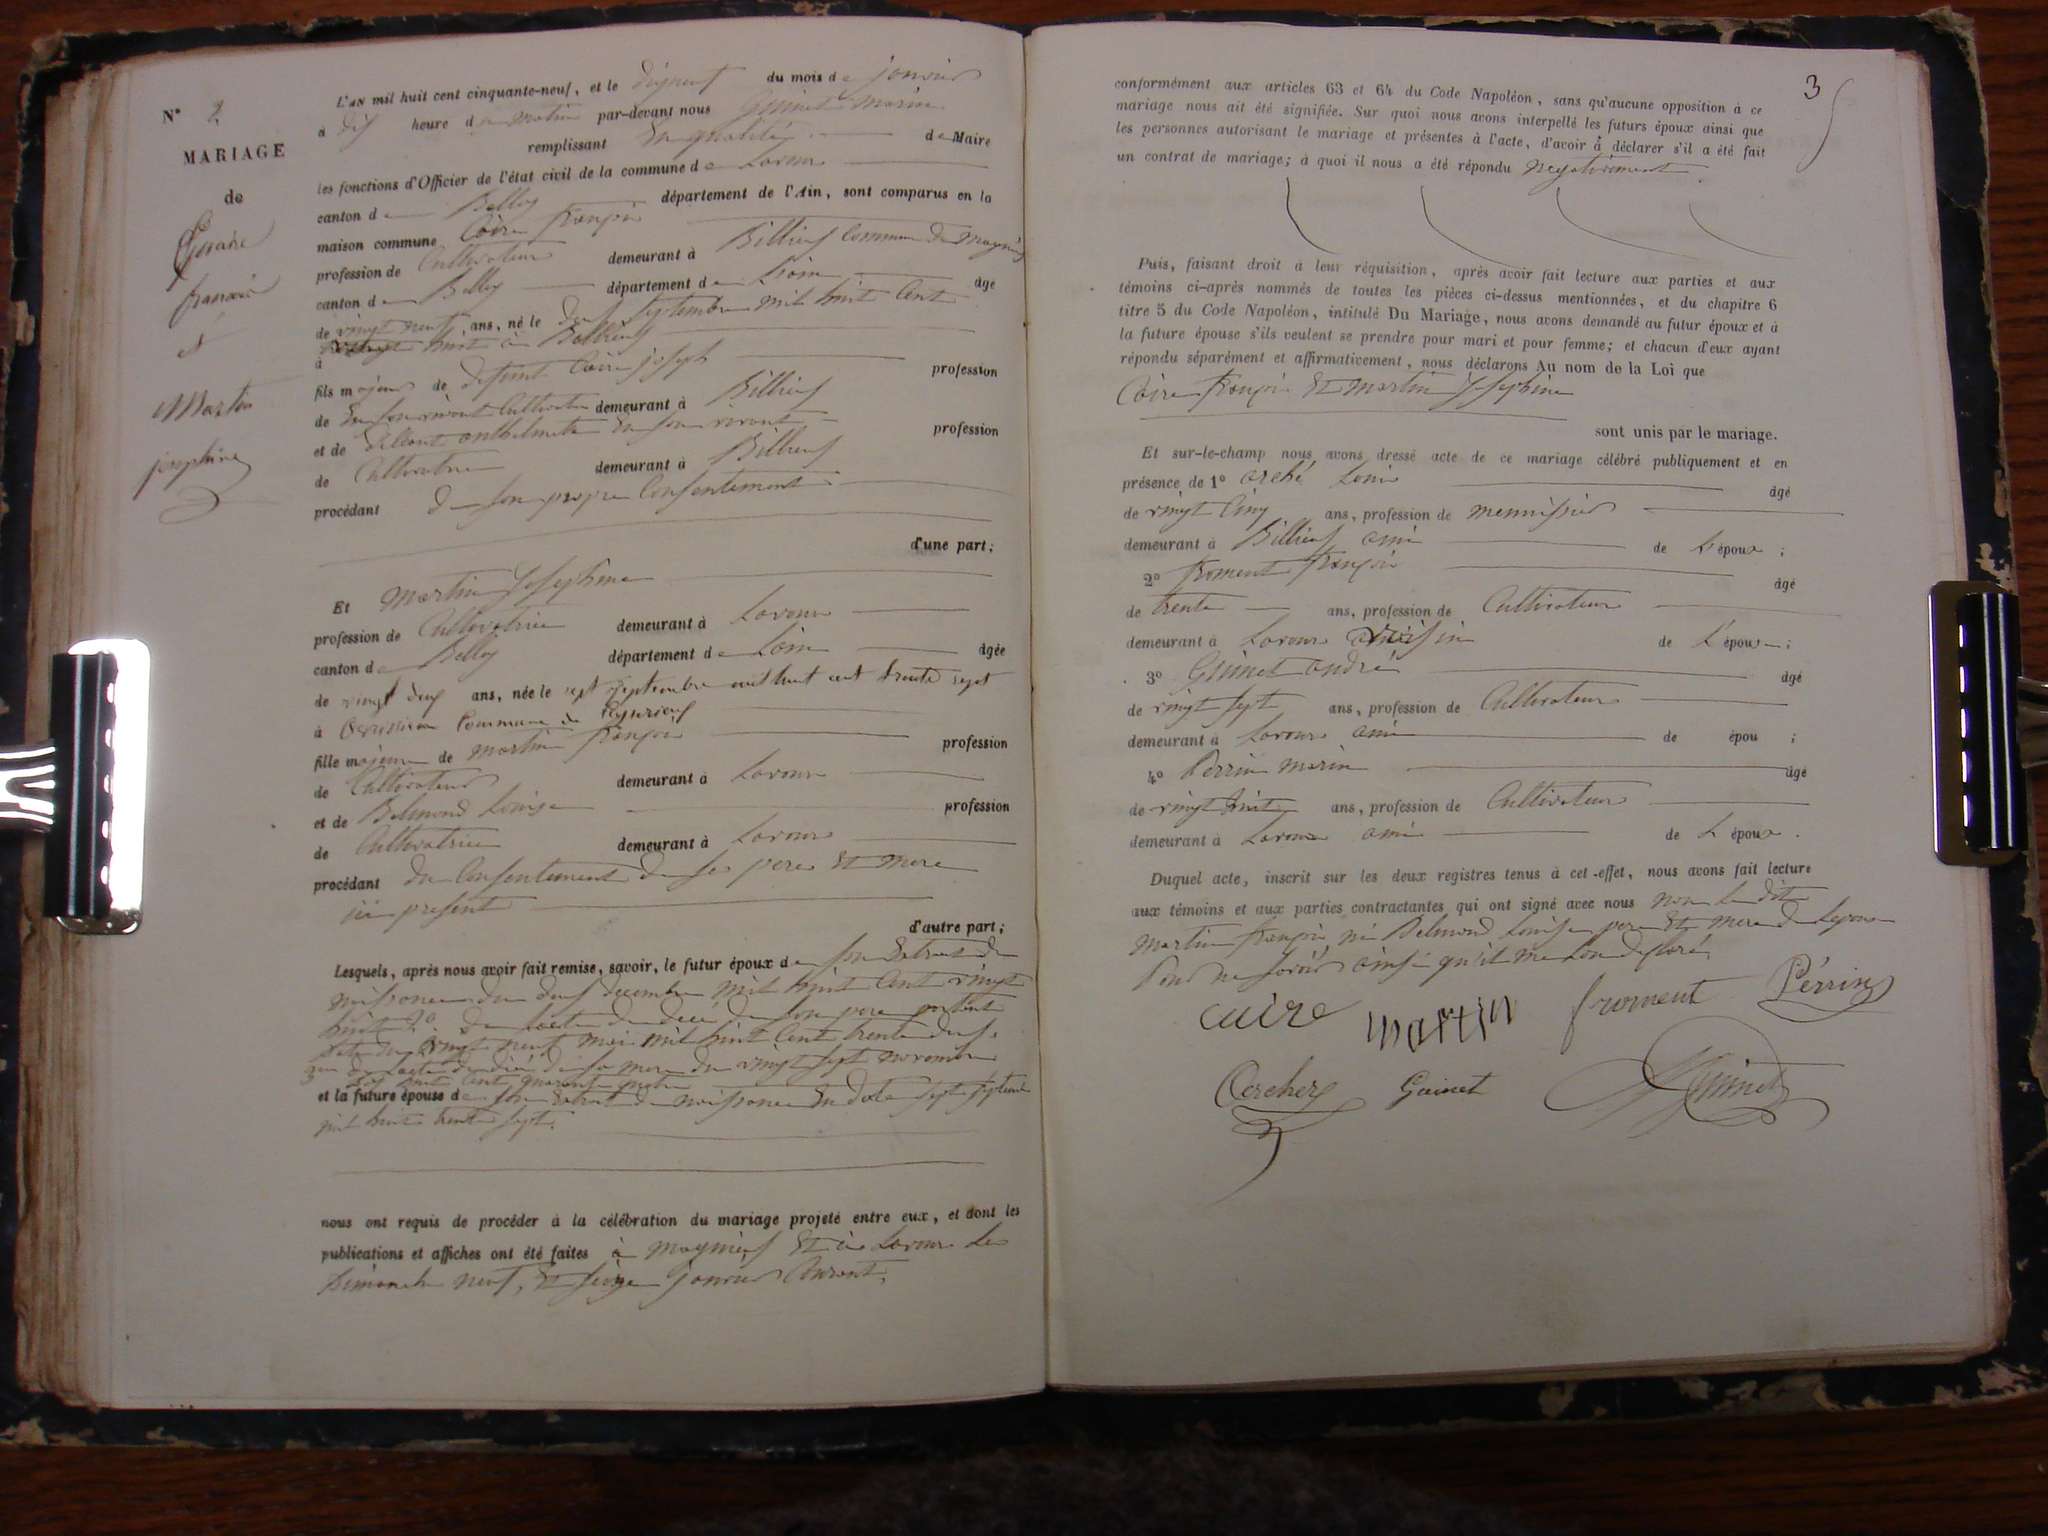 N° 2
MARIAGE
de
Caire
françois
et
Martin
josephine
L'AN mil huit cent cinquante-neuf, et le dixneuf du mois de janvier
à dix heure du matin par-devant nous Guinet Marin
remplissant En qualité de Maire
les fonctions d'Officier de l'état civil de la commune de Lavour
canton de Belley département de l'Ain, sont comparus en la
maison commune Caire françois
profession de Cultivateur demeurant à Billieuf Commune de Magnieu
canton de Belley département de Lain âgé
de vingt neuf, ans, né le deux septembre mil huit Cent
vingt huit à Billieuf
à
fils majeur de defunt Caire joseph profession
de En son vivant Cultivateur demeurant à Billieuf
et de anthelmette En son vivant profession
de Cultivatrice demeurant à Billieuf
procédant de son propre Consentement
d'une part;
Et Martin Josephine
profession de Cultivatrice demeurant à Lavour
canton de Belley département de Lain âgée
de vingt deux ans, née le sept septembre mil huit cent trente sept
à Commune de Peyrieuf
fille majeure de martin françois profession
de Cultivateur demeurant à Lavour
et de Belmond Louise profession
de Cultivatrice demeurant à Lavour
procédant du Consentement de ses pere Et mere
ici present
d'autre part;
Lesquels, après nous avoir fait remise, savoir, le futur époux de son Extrait de
naissance du deux decembre mil huit Cent vingt
huit 2° de lacte de deces de son pere portant
date du vingt neuf mai mil huit Cent trente deux,
3° de lacte de décé de sa mere du vingt sept novembre
mil huit Cent quarante quatre
et la future épouse de son Extrait de naissance En date sept septembre
mil huit trente sept.
nous ont requis de procéder à la célébration du mariage projeté entre eux, et dont les
publications et affiches ont été faites à magnieuf Et à Lavour les
Dimanche neuf, Et seize janvier Courant,
3
conformément aux articles 63 et 64 du Code Napoléon, sans qu'aucune opposition à ce
mariage nous ait été signifiée. Sur quoi nous avons interpellé les futurs époux ainsi que
les personnes autorisant le mariage et présentes à l'acte, d'avoir à déclarer s'il a été fait
un contrat de mariage; à quoi il nous a été répondu negativement.
Puis, faisant droit à leur réquisition, après avoir fait lecture aux parties et aux
témoins ci-après nommés de toutes les pièces ci-dessus mentionnées, et du chapitre 6
titre 5 du Code Napoléon, intitulé Du Mariage, nous avons demandé au futur époux et à
la future épouse s'ils veulent se prendre pour mari et pour femme; et chacun d'eux ayant
répondu séparément et affirmativement, nous déclarons Au nom de la Loi que
Caire françois Et martin Josephine
sont unis par le mariage.
Et sur-le-champ nous avons dressé acte de ce mariage célébré publiquement et en
présence de 1° Louis âgé
de vingt Cinq ans, profession de mennisier
demeurant à Billieuf ami de L'époux ;
2° froment françois âgé
de trente ans, profession de Cultivateur
demeurant à Lavour de L'époux ;
3° Guinet andré âgé
de vingt sept ans, profession de Cultivateur
demeurant à Lavour ami de épou ;
4° Perrin marin âgé
de vingt huit ans, profession de Cultivateur
demeurant à Lavour ami de L époux .
Duquel acte, inscrit sur les deux registres tenus à cet effet, nous avons fait lecture
aux témoins et aux parties contractantes qui ont signé avec nous non le dit
Martin françois ni Belmond Louise pere Et mere de Lepouse
Pour ne savoir ainsi qu'il me Lon declaré,
caire martin froment Pérrin
Cercher Guinet Guinet